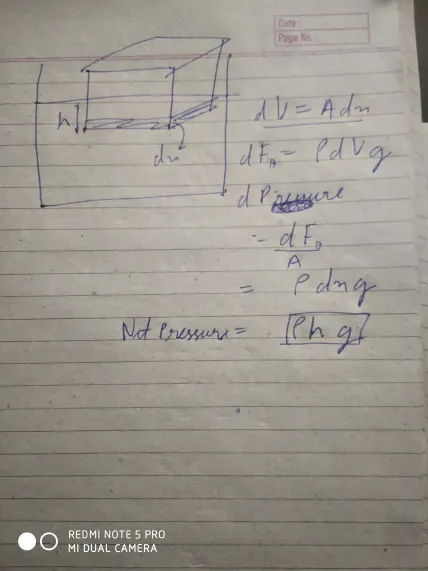 Date:
Page No.:
h
dx
dV = Adx
dF_B = ρdVg
dPressure
= dF_B / A
= ρdxg
Net Pressure = ρhg
REDMI NOTE 5 PRO
MI DUAL CAMERA